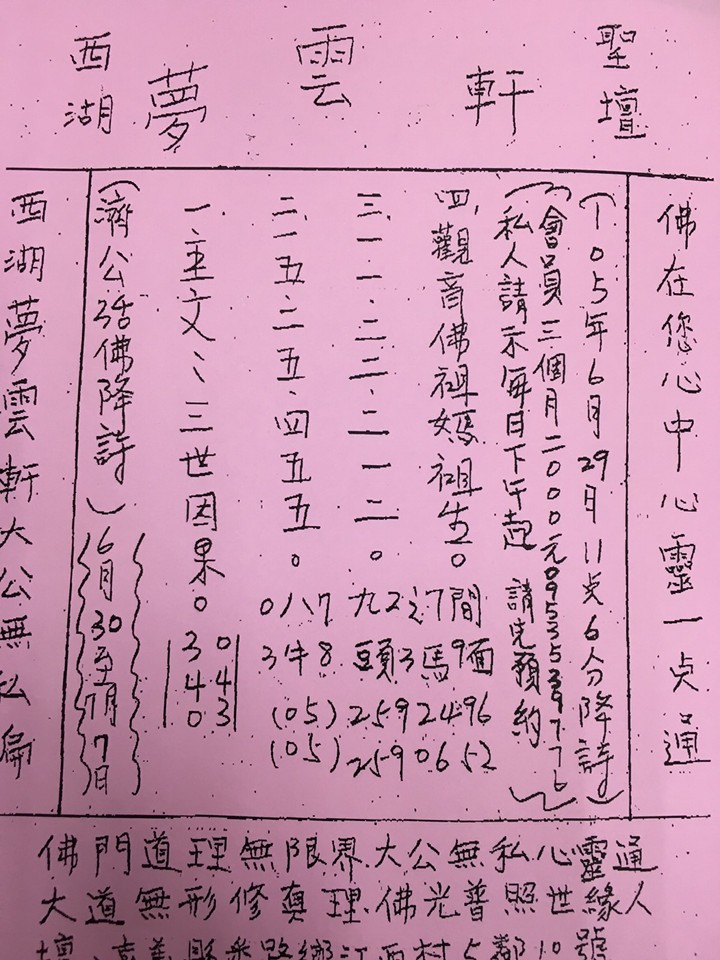 西湖 夢雲軒 聖壇
西湖夢雲軒大公無私偏
(濟公活佛降詩)6月30至7月7日
一、主文:三世因果。
3 0
4 4
0 3
二.一五.二五.四五五。
三.一一.二二.二一二。
四.觀音佛祖媽祖生。
0八7 九2 7間
3牛8 頭3馬9面
(05)2592496
(05)2590652
(私人請示每日下午起 請先預約)
(會員三個月2000元0953539776)
(105年6月29日11点6分降詩)
佛在您心中心靈一点通
佛門道理無限界大公無私心靈通
大道無形修真理佛光普照世緣人
壇:嘉義縣番路鄉江西村5鄰10號